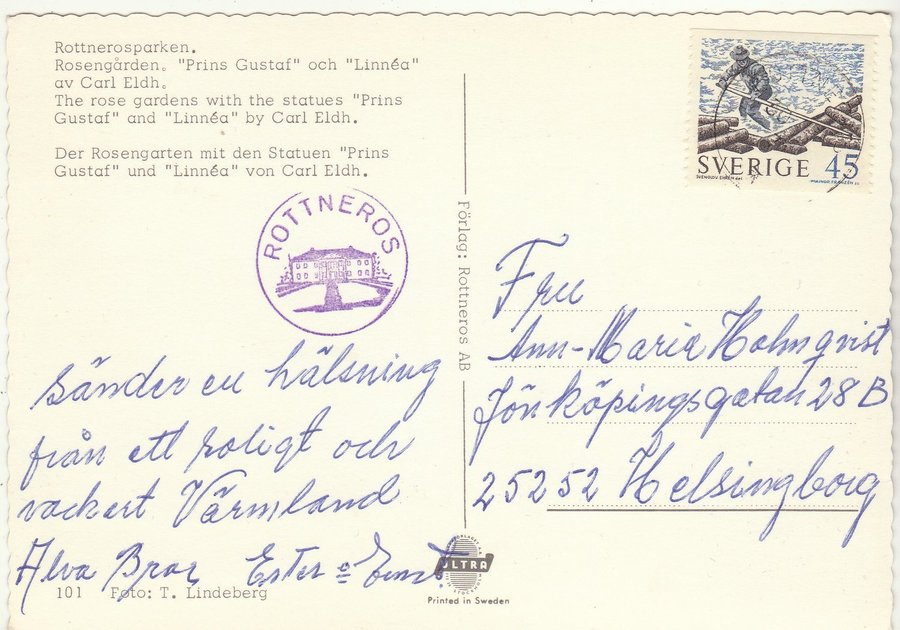 Rottnerosparken.
Rosengården. "Prins Gustaf" och "Linnéa"
av Carl Eldh.
The rose gardens with the statues "Prins
Gustaf" and "Linnéa" by Carl Eldh.
Der Rosengarten mit den Statuen "Prins
Gustaf" und "Linnéa" von Carl Eldh.
ROTTNEROS
sänder en hälsning
från ett soligt och
vackert Värmland
Alva Ester o Ernst
101 Foto: T. Lindeberg
Förlag: Rottneros AB
SVERIGE 45
Fru
Ann-Maria Holmqvist
Jönköpingsgatan 28 B
25252 Helsingborg
ULTRA
Printed in Sweden